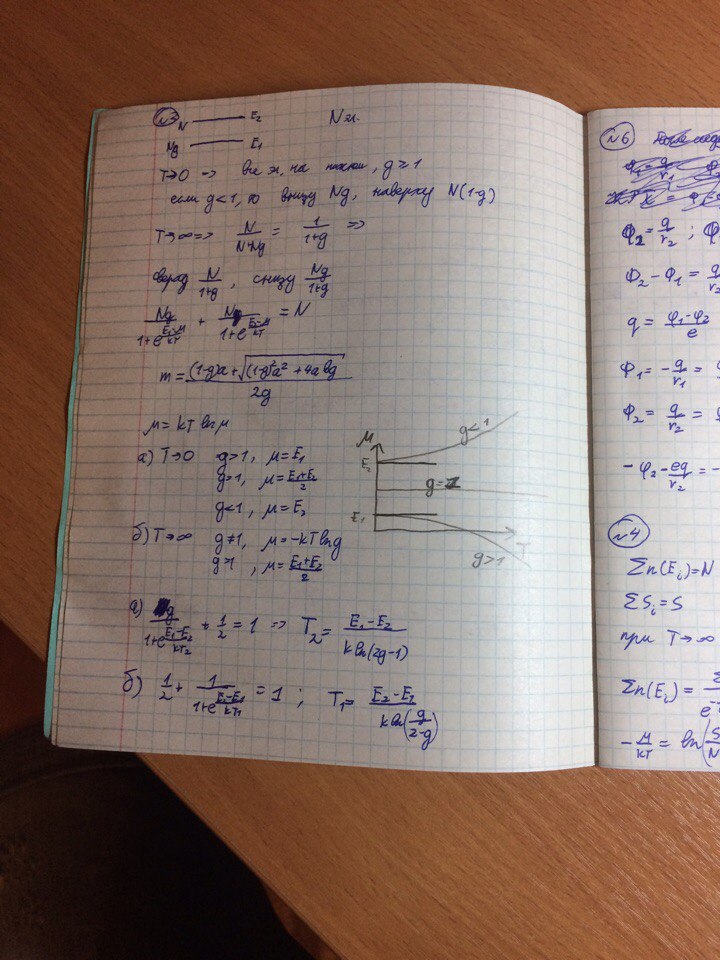 №3
N E₂ N эл.
Ng E₁
T→0 -> все эл. на нижнем, g≥1
если g<1, то внизу Ng, наверху N(1-g)
T→∞ => N/(N+Ng) = 1/(1+g) =>
сверху N/(1+g), снизу Ng/(1+g)
Ng/(1+e^((E₁-μ)/kT)) + N/(1+e^((E₂-μ)/kT)) = N
m = ((1-g)a+√((1-g)²a²+4abg))/2g
μ = kT ln μ
а) T→0 g>1, μ=E₁
g=1, μ=(E₁+E₂)/2
g<1, μ=E₂
б) T→∞ g≠1, μ=-kT ln g
g=1, μ=(E₁+E₂)/2
μ g<1
E₂
g=1
E₁
T
g>1
а) g/(1+e^((E₁-E₂)/kT₂)) + 1/2 = 1 => T₂ = (E₁-E₂)/(k ln(2g-1))
б) 1/2 + 1/(1+e^((E₂-E₁)/kT₁)) = 1; T₁ = (E₂-E₁)/(k ln(g/(2-g)))
№6
φ₂ = q/r₂ ; φ
φ₂ - φ₁ = q/r₂
q = (φ₁-φ₂)/e
φ₁ = -q/r₁ =
φ₂ = q/r₂ =
-φ₂ - eq/r₂ = -
№4
Σn(Eᵢ)=N
ΣSᵢ=S
при T→∞
Σn(Eᵢ) =
-μ/kT = ln(S/N